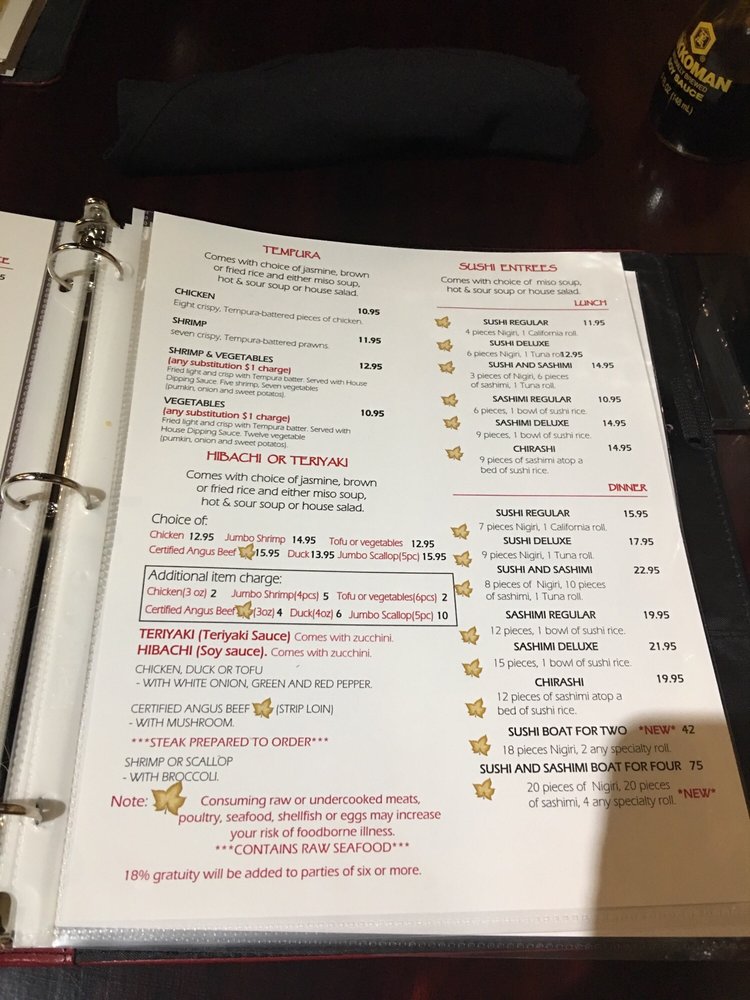 KKOMAN
SOY SAUCE
(148 mL)
CE
5
TEMPURA
Comes with choice of jasmine, brown
or fried rice and either miso soup,
hot & sour soup or house salad.
CHICKEN 10.95
Eight crispy, Tempura-battered pieces of chicken.
SHRIMP 11.95
seven crispy, Tempura-battered prawns.
SHRIMP & VEGETABLES 12.95
(any substitution $1 charge)
Fried light and crisp with Tempura batter. Served with House
Dipping Sauce. Five shrimp, Seven vegetables
(pumkin, onion and sweet potatos).
VEGETABLES 10.95
(any substitution $1 charge)
Fried light and crisp with Tempura batter. Served with
House Dipping Sauce. Twelve vegetable
(pumkin, onion and sweet potatos).
HIBACHI OR TERIYAKI
Comes with choice of jasmine, brown
or fried rice and either miso soup,
hot & sour soup or house salad.
Choice of:
Chicken 12.95 Jumbo Shrimp 14.95 Tofu or vegetables 12.95
Certified Angus Beef 15.95 Duck 13.95 Jumbo Scallop(5pc) 15.95
Additional item charge:
Chicken(3 oz) 2 Jumbo Shrimp(4pcs) 5 Tofu or vegetables(6pcs) 2
Certified Angus Beef (3oz) 4 Duck(4oz) 6 Jumbo Scallop(5pc) 10
TERIYAKI (Teriyaki Sauce) Comes with zucchini.
HIBACHI (Soy sauce). Comes with zucchini.
CHICKEN, DUCK OR TOFU
- WITH WHITE ONION, GREEN AND RED PEPPER.
CERTIFIED ANGUS BEEF (STRIP LOIN)
- WITH MUSHROOM.
***STEAK PREPARED TO ORDER***
SHRIMP OR SCALLOP
- WITH BROCCOLI.
Note: Consuming raw or undercooked meats,
poultry, seafood, shellfish or eggs may increase
your risk of foodborne illness.
***CONTAINS RAW SEAFOOD***
18% gratuity will be added to parties of six or more.
SUSHI ENTREES
Comes with choice of miso soup,
hot & sour soup or house salad.
LUNCH
SUSHI REGULAR 11.95
4 pieces Nigiri, 1 California roll.
SUSHI DELUXE
6 pieces Nigiri, 1 Tuna ro12.95
SUSHI AND SASHIMI 14.95
3 pieces of Nigiri, 6 pieces
of sashimi, 1 Tuna roll.
SASHIMI REGULAR 10.95
6 pieces, 1 bowl of sushi rice.
SASHIMI DELUXE 14.95
9 pieces, 1 bowl of sushi rice.
CHIRASHI 14.95
9 pieces of sashimi atop a
bed of sushi rice.
DINNER
SUSHI REGULAR 15.95
7 pieces Nigiri, 1 California roll.
SUSHI DELUXE 17.95
9 pieces Nigiri, 1 Tuna roll.
SUSHI AND SASHIMI 22.95
8 pieces of Nigiri, 10 pieces
of sashimi, 1 Tuna roll.
SASHIMI REGULAR 19.95
12 pieces, 1 bowl of sushi rice.
SASHIMI DELUXE 21.95
15 pieces, 1 bowl of sushi rice.
CHIRASHI 19.95
12 pieces of sashimi atop a
bed of sushi rice.
SUSHI BOAT FOR TWO *NEW* 42
18 pieces Nigiri, 2 any specialty roll.
SUSHI AND SASHIMI BOAT FOR FOUR 75
20 pieces of Nigiri, 20 pieces
of sashimi, 4 any specialty roll. *NEW*